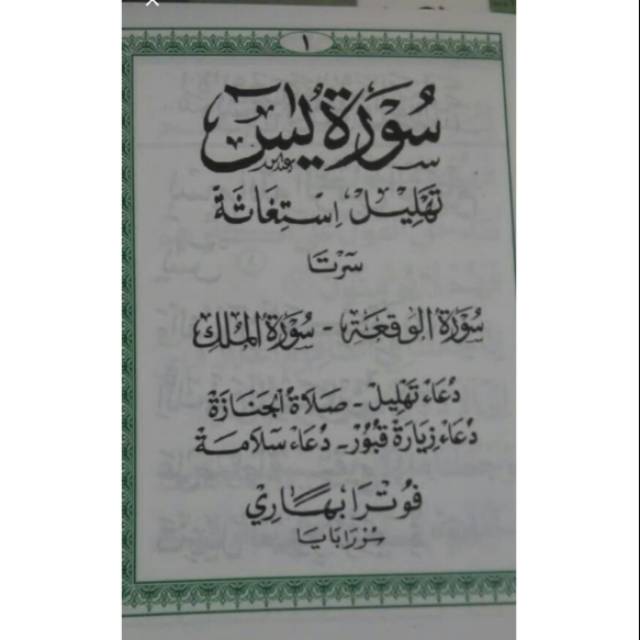 ١
سُوْرَةُ يٰسٓ
تَهْلِيْلْ اِسْتِغَاثَةْ
سَرْتَا
سُوْرَةُ الْوَقِعَةِ - سُوْرَةُ الْمُلْكِ
دُعَاءْ تَهْلِيْلْ - صَلَاةُ الْجَنَازَةْ
دُعَاءْ زِيَارَةْ قُبُوْرْ - دُعَاءْ سَلَامَةْ
فُوْتْرَا بْهَارِيْ
سُوْرَابَايَا